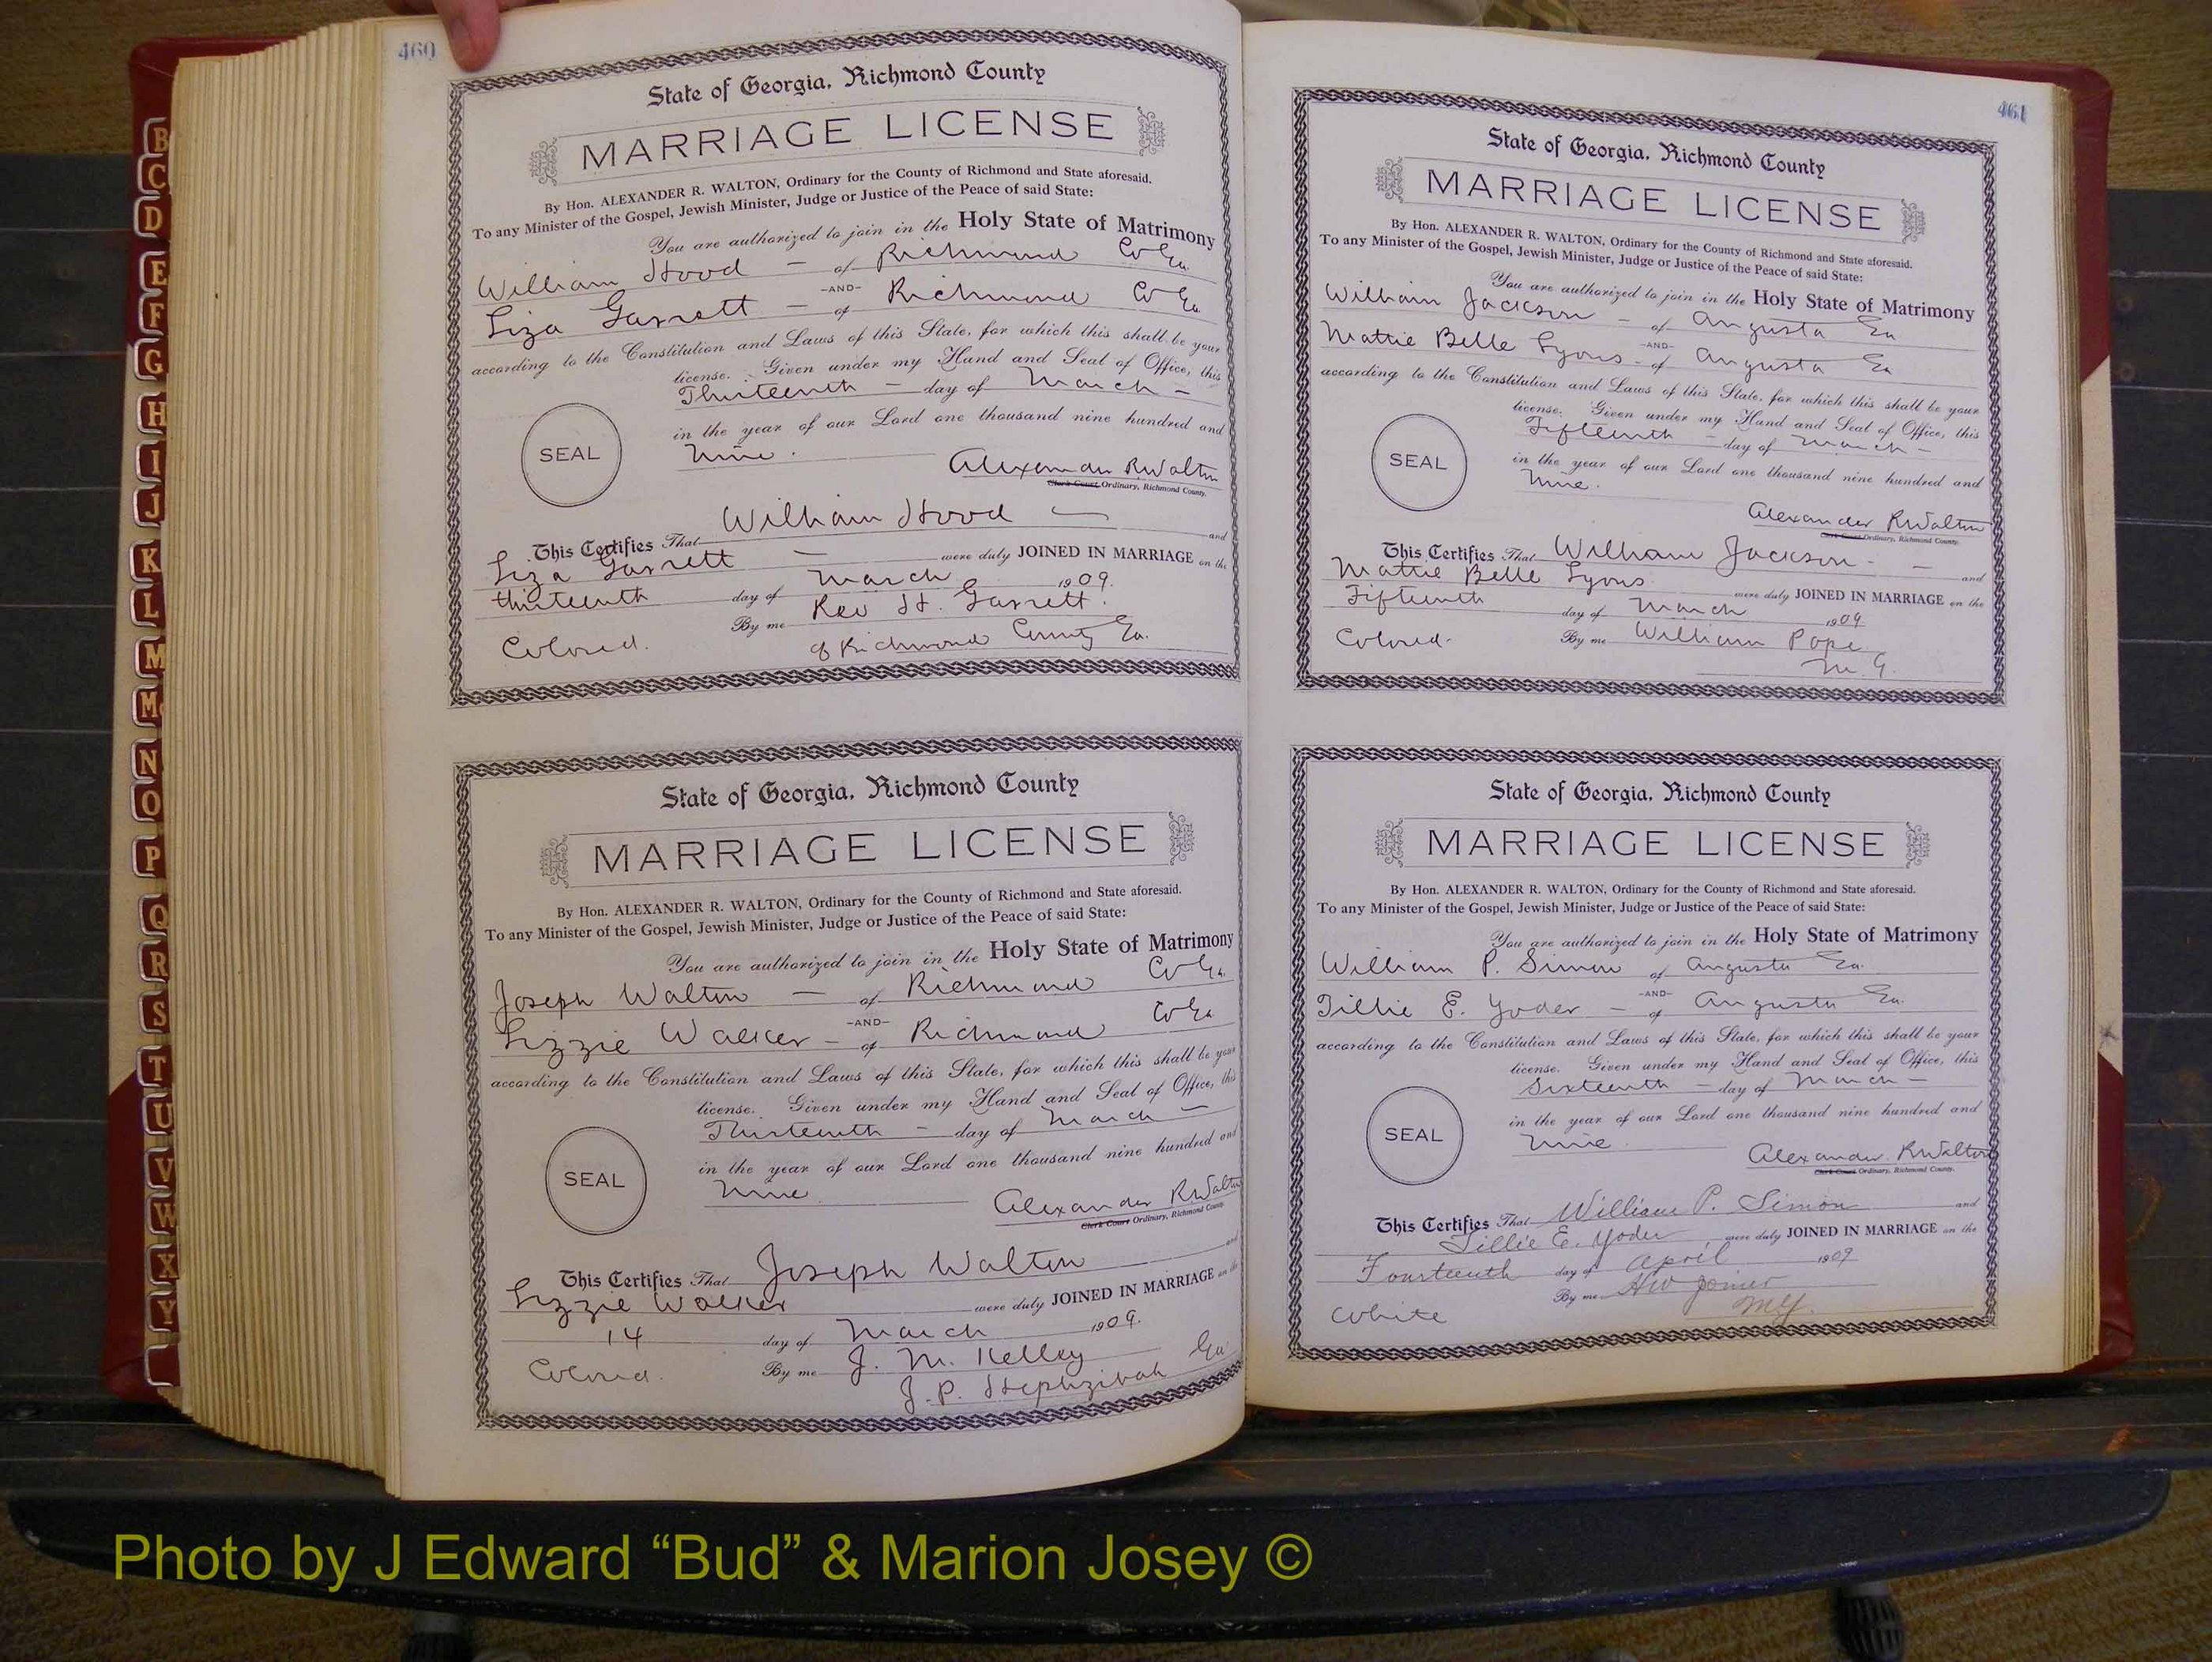 460
State of Georgia, Richmond County
MARRIAGE LICENSE
By Hon. ALEXANDER R. WALTON, Ordinary for the County of Richmond and State aforesaid.
To any Minister of the Gospel, Jewish Minister, Judge or Justice of the Peace of said State:
You are authorized to join in the Holy State of Matrimony
William Hood — of Richmond Co Ga.
-AND-
Liza Garrett — of Richmond Co Ga.
according to the Constitution and Laws of this State, for which this shall be your
license. Given under my Hand and Seal of Office, this
Thirteenth — day of March —
in the year of our Lord one thousand nine hundred and
SEAL
Nine.
Alexander R Walton
Clerk Court Ordinary, Richmond County.
This Certifies That William Hood — and
Liza Garrett — were duly JOINED IN MARRIAGE on the
thirteenth day of March 1909.
By me Rev H. Garrett.
Colored. of Richmond County Ga.
State of Georgia, Richmond County
MARRIAGE LICENSE
By Hon. ALEXANDER R. WALTON, Ordinary for the County of Richmond and State aforesaid.
To any Minister of the Gospel, Jewish Minister, Judge or Justice of the Peace of said State:
You are authorized to join in the Holy State of Matrimony
Joseph Walton — of Richmond Co Ga.
-AND-
Lizzie Walker — of Richmond Co Ga
according to the Constitution and Laws of this State, for which this shall be your
license. Given under my Hand and Seal of Office, this
Thirteenth — day of March —
in the year of our Lord one thousand nine hundred and
SEAL
Nine
Alexander R Walton
Clerk Court Ordinary, Richmond County
This Certifies That Joseph Walton and
Lizzie Walker were duly JOINED IN MARRIAGE on the
14 day of March 1909.
Colored. By me J. M. Kelley
J. P. Hephzibah Ga
461
State of Georgia, Richmond County
MARRIAGE LICENSE
By Hon. ALEXANDER R. WALTON, Ordinary for the County of Richmond and State aforesaid.
To any Minister of the Gospel, Jewish Minister, Judge or Justice of the Peace of said State:
You are authorized to join in the Holy State of Matrimony
William Jackson — of Augusta Ga
-AND-
Mattie Belle Lyons — of Augusta Ga
according to the Constitution and Laws of this State, for which this shall be your
license. Given under my Hand and Seal of Office, this
Fifteenth — day of March —
in the year of our Lord one thousand nine hundred and
SEAL
Nine.
Alexander R Walton
Clerk Court Ordinary, Richmond County.
This Certifies That William Jackson — and
Mattie Belle Lyons were duly JOINED IN MARRIAGE on the
Fifteenth day of March 1909
Colored — By me William Pope
M. G.
State of Georgia, Richmond County
MARRIAGE LICENSE
By Hon. ALEXANDER R. WALTON, Ordinary for the County of Richmond and State aforesaid.
To any Minister of the Gospel, Jewish Minister, Judge or Justice of the Peace of said State:
You are authorized to join in the Holy State of Matrimony
William P. Simon of Augusta Ga.
-AND-
Tillie E. Yoder — of Augusta Ga.
according to the Constitution and Laws of this State, for which this shall be your
license. Given under my Hand and Seal of Office, this
Sixteenth — day of March —
in the year of our Lord one thousand nine hundred and
SEAL
Nine
Alexander R Walton
Clerk Court Ordinary, Richmond County.
This Certifies That William P. Simon and
Tillie E. Yoder were duly JOINED IN MARRIAGE on the
Fourteenth day of April 1909
By me HW Joiner
White MG.
B
C
D
E
F
G
H
I
J
K
L
M
Mc
N
O
P
Q
R
S
T
U
V
W
X
Y
Photo by J Edward “Bud” & Marion Josey ©